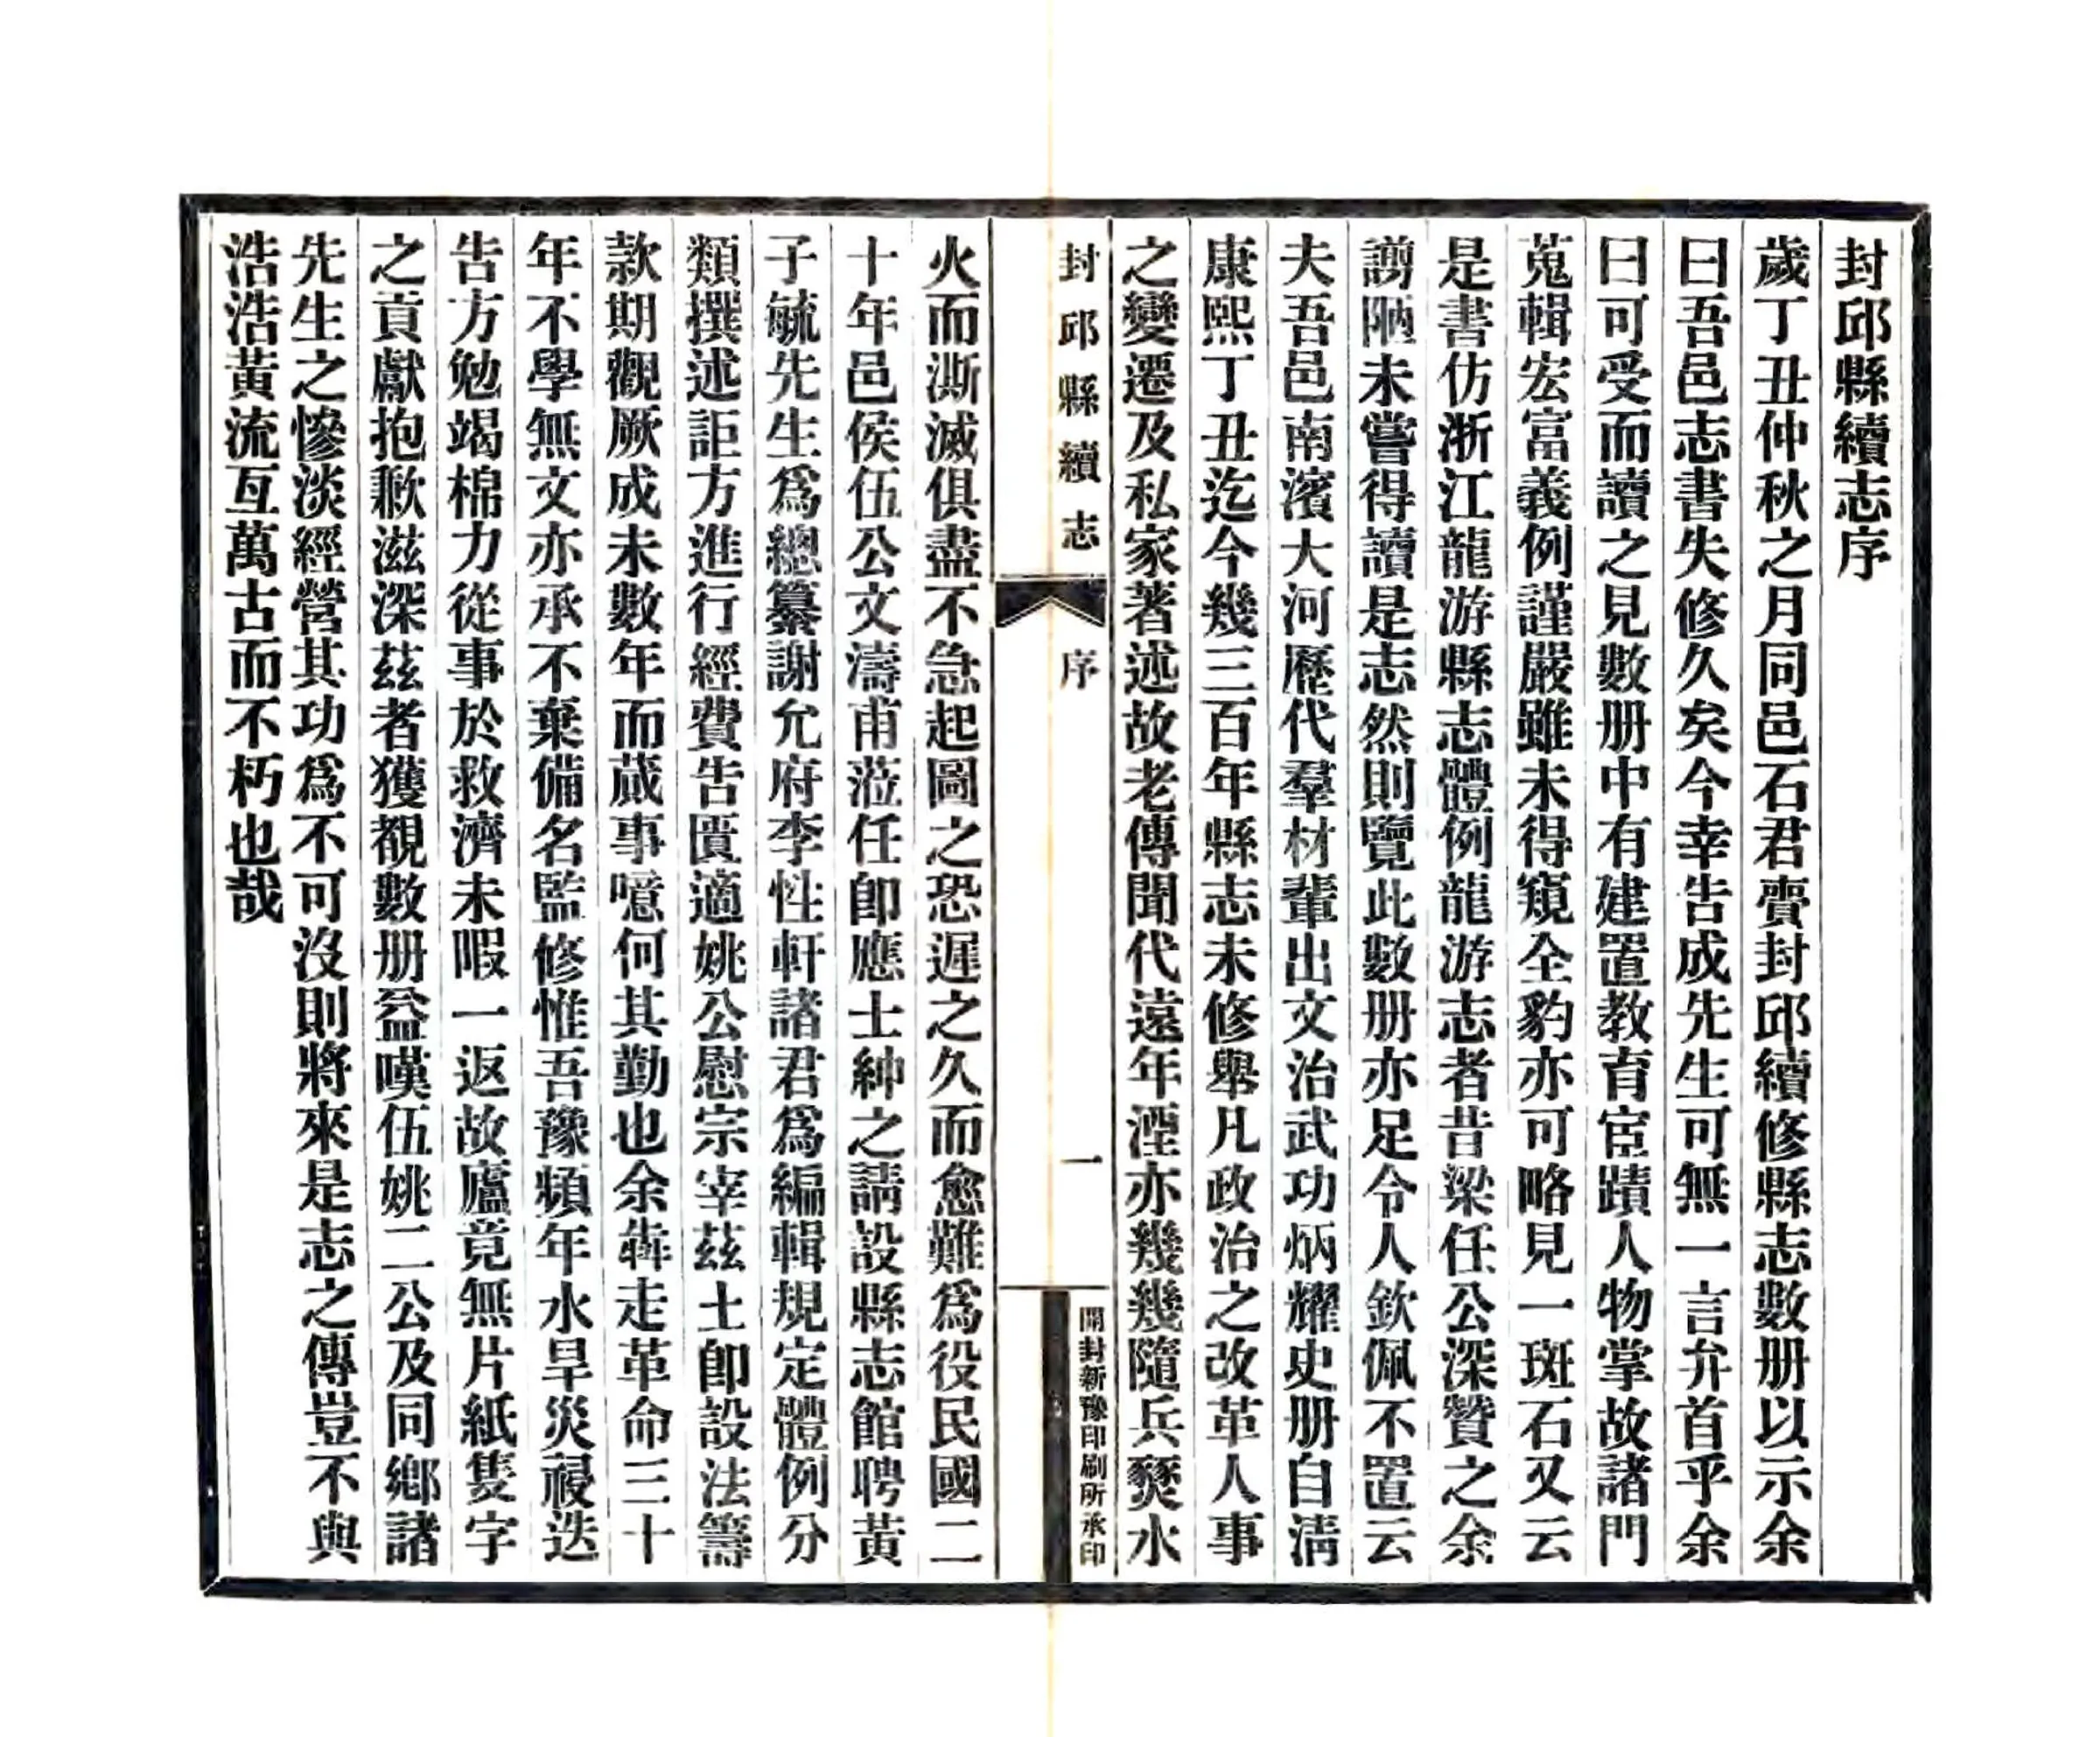 封邱縣續志序
歲丁丑仲秋之月同邑石君賫封邱續修縣志數册以示余
曰吾邑志書失修久矣今幸告成先生可無一言弁首乎余
曰可受而讀之見數册中有建置教育宦蹟人物掌故諸門
蒐輯宏富義例謹嚴雖未得窺全豹亦可略見一斑石又云
是書仿浙江龍游縣志體例龍游志者昔梁任公深贊之余
譾陋未嘗得讀是志然則覽此數册亦足令人欽佩不置云
夫吾邑南濱大河歷代羣材輩出文治武功炳耀史册自淸
康熙丁丑迄今幾三百年縣志未修舉凡政治之改革人事
之變遷及私家著述故老傳聞代遠年湮亦幾幾隨兵燹水
封邱縣續志
序
一
開封新豫印刷所承印
火而澌滅俱盡不急起圖之恐遲之久而愈難爲役民國二
十年邑侯伍公文濤甫蒞任卽應士紳之請設縣志館聘黃
子毓先生爲總纂謝允府李性軒諸君爲編輯規定體例分
類撰述詎方進行經費告匱適姚公慰宗宰茲土卽設法籌
款期觀厥成未數年而蕆事噫何其勤也余犇走革命三十
年不學無文亦承不棄備名監修惟吾豫頻年水旱災祲迭
告方勉竭棉力從事於救濟未暇一返故廬竟無片紙隻字
之貢獻抱歉滋深茲者獲覩數册益嘆伍姚二公及同鄉諸
先生之慘淡經營其功爲不可沒則將來是志之傳豈不與
浩浩黃流互萬古而不朽也哉